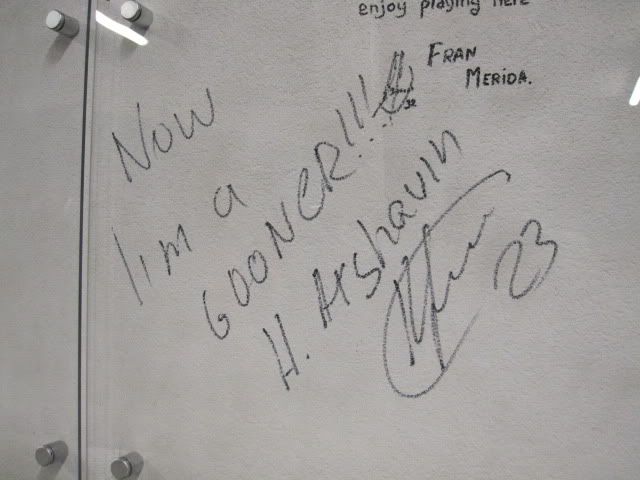 enjoy playing here
FRAN
MERIDA.
32
Now
I'm a
GOONER!!!
A. Arshavin
23